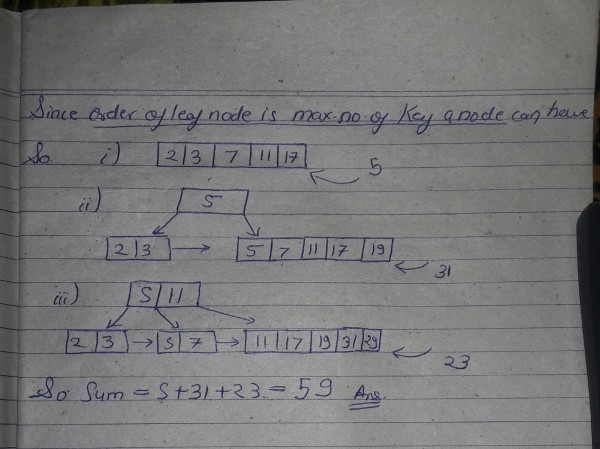 Since order of leaf node is max. no. of key a node can have
So i) 2 3 7 11 17 5
ii) 5
2 3 5 7 11 17 19
31
iii) 5 11
2 3 5 7 11 17 19 31 29
23
So Sum = 5+31+23 = 59 Ans.